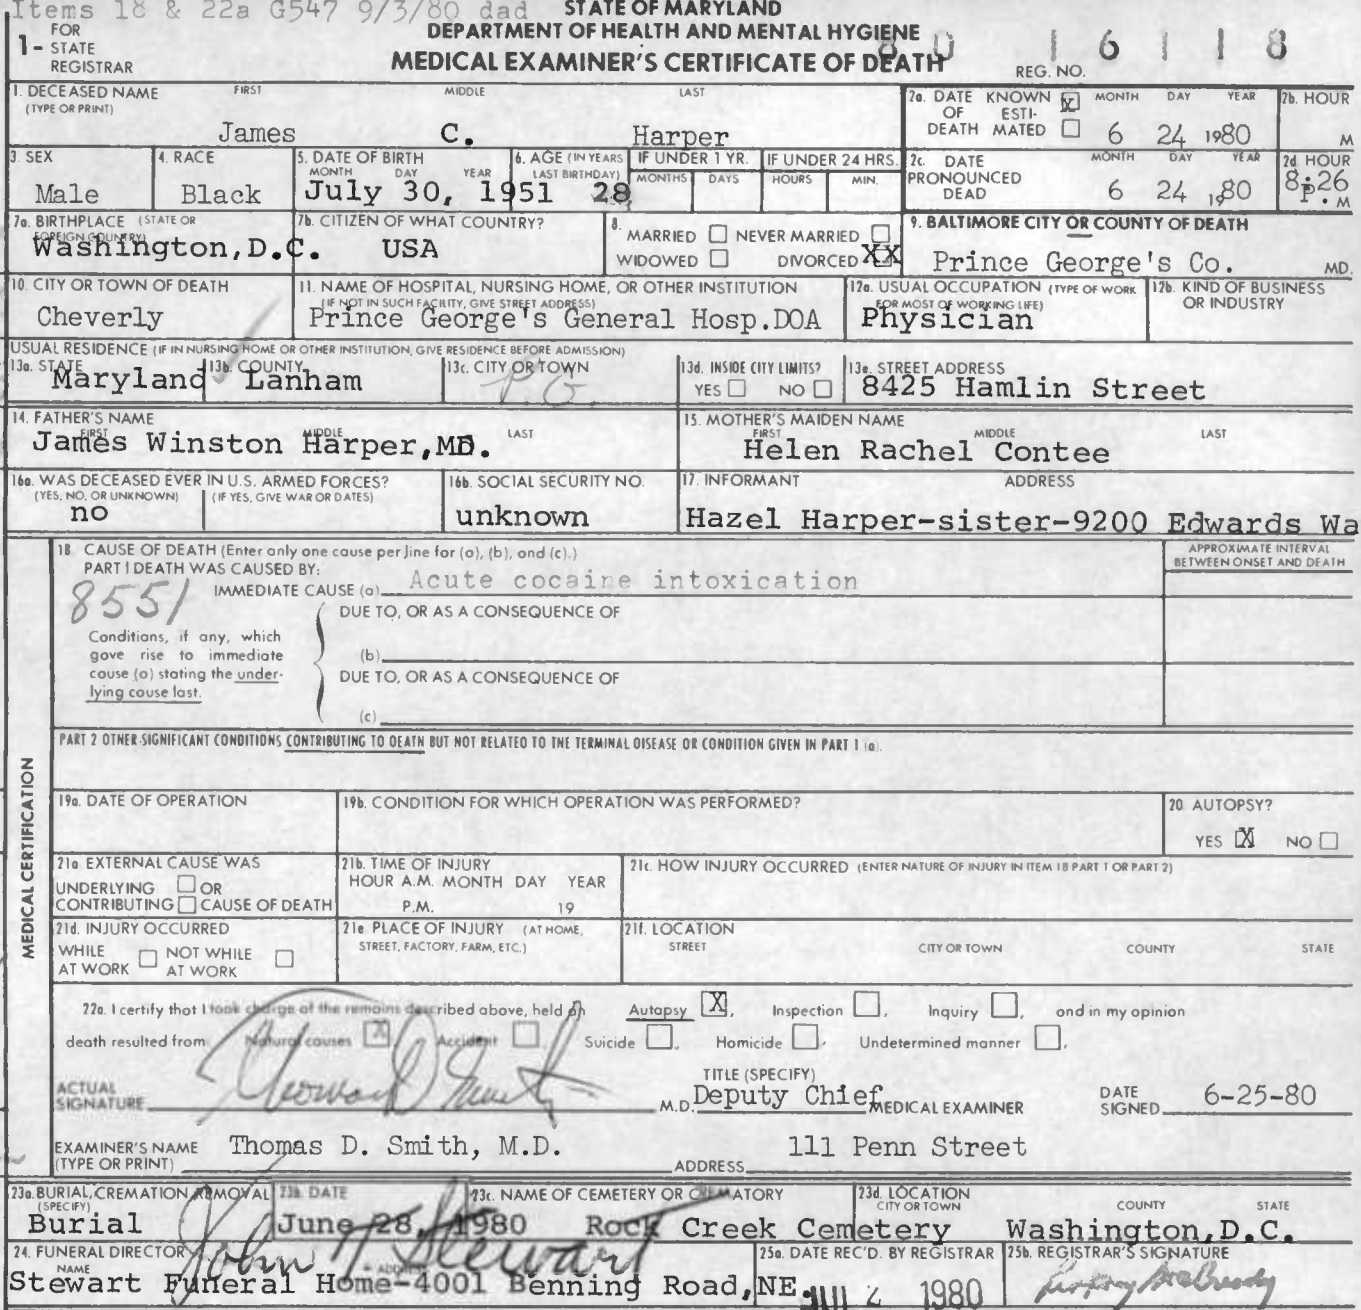 Items 18 & 22a G547 9/3/80 dad
STATE OF MARYLAND
FOR
1- STATE
REGISTRAR
DEPARTMENT OF HEALTH AND MENTAL HYGIENE
MEDICAL EXAMINER'S CERTIFICATE OF DEATH
REG. NO. 80 16118
1. DECEASED NAME FIRST MIDDLE LAST
(TYPE OR PRINT)
James C. Harper
2a. DATE KNOWN [X] MONTH DAY YEAR
OF ESTI-
DEATH MATED ☐ 6 24 1980
2b. HOUR
M
3. SEX
Male
4. RACE
Black
5. DATE OF BIRTH
MONTH DAY YEAR
July 30, 1951
6. AGE (IN YEARS
LAST BIRTHDAY)
28
IF UNDER 1 YR.
MONTHS DAYS
IF UNDER 24 HRS.
HOURS MIN.
2c. DATE MONTH DAY YEAR
PRONOUNCED
DEAD 6 24 1980
2d HOUR
8:26
P. M
7a. BIRTHPLACE (STATE OR
FOREIGN COUNTRY)
Washington, D.C.
7b. CITIZEN OF WHAT COUNTRY?
USA
8.
MARRIED ☐ NEVER MARRIED ☐
WIDOWED ☐ DIVORCED XX
9. BALTIMORE CITY OR COUNTY OF DEATH
Prince George's Co. MD.
10. CITY OR TOWN OF DEATH
Cheverly
11. NAME OF HOSPITAL, NURSING HOME, OR OTHER INSTITUTION
(IF NOT IN SUCH FACILITY, GIVE STREET ADDRESS)
Prince George's General Hosp.DOA
12a. USUAL OCCUPATION (TYPE OF WORK
FOR MOST OF WORKING LIFE)
Physician
12b. KIND OF BUSINESS
OR INDUSTRY
USUAL RESIDENCE (IF IN NURSING HOME OR OTHER INSTITUTION, GIVE RESIDENCE BEFORE ADMISSION)
13a. STATE
Maryland
13b. COUNTY
Lanham
13c. CITY OR TOWN
P.G.
13d. INSIDE CITY LIMITS?
YES ☐ NO ☐
13e. STREET ADDRESS
8425 Hamlin Street
14. FATHER'S NAME
FIRST MIDDLE LAST
James Winston Harper, MD.
15. MOTHER'S MAIDEN NAME
FIRST MIDDLE LAST
Helen Rachel Contee
16a. WAS DECEASED EVER IN U.S. ARMED FORCES?
(YES, NO, OR UNKNOWN) (IF YES, GIVE WAR OR DATES)
no
16b. SOCIAL SECURITY NO.
unknown
17. INFORMANT ADDRESS
Hazel Harper-sister-9200 Edwards Wa
MEDICAL CERTIFICATION
18 CAUSE OF DEATH (Enter only one cause per line for (a), (b), and (c).)
PART I DEATH WAS CAUSED BY:
APPROXIMATE INTERVAL
BETWEEN ONSET AND DEATH
8551
IMMEDIATE CAUSE (a) Acute cocaine intoxication
DUE TO, OR AS A CONSEQUENCE OF
Conditions, if any, which
gave rise to immediate
cause (a) stating the under-
lying cause last.
(b)
DUE TO, OR AS A CONSEQUENCE OF
(c)
PART 2 OTHER SIGNIFICANT CONDITIONS CONTRIBUTING TO DEATH BUT NOT RELATED TO THE TERMINAL DISEASE OR CONDITION GIVEN IN PART 1 (a).
19a. DATE OF OPERATION
19b. CONDITION FOR WHICH OPERATION WAS PERFORMED?
20. AUTOPSY?
YES [X] NO ☐
21a EXTERNAL CAUSE WAS
UNDERLYING ☐ OR
CONTRIBUTING ☐ CAUSE OF DEATH
21b. TIME OF INJURY
HOUR A.M. MONTH DAY YEAR
P.M. 19
21c. HOW INJURY OCCURRED (ENTER NATURE OF INJURY IN ITEM 18 PART 1 OR PART 2)
21d. INJURY OCCURRED
WHILE ☐ NOT WHILE ☐
AT WORK AT WORK
21e PLACE OF INJURY (AT HOME,
STREET, FACTORY, FARM, ETC.)
21f. LOCATION
STREET CITY OR TOWN COUNTY STATE
22a. I certify that I took charge of the remains described above, held an Autopsy [X], Inspection ☐, Inquiry ☐, and in my opinion
death resulted from Natural causes [X], Accident ☐, Suicide ☐, Homicide ☐, Undetermined manner ☐.
ACTUAL
SIGNATURE M.D.
TITLE (SPECIFY)
Deputy Chief MEDICAL EXAMINER
DATE
SIGNED 6-25-80
EXAMINER'S NAME
(TYPE OR PRINT) Thomas D. Smith, M.D.
ADDRESS 111 Penn Street
23a. BURIAL, CREMATION REMOVAL
(SPECIFY)
Burial
23b. DATE
June 28, 1980
23c. NAME OF CEMETERY OR CREMATORY
Rock Creek Cemetery
23d. LOCATION
CITY OR TOWN COUNTY STATE
Washington, D.C.
24. FUNERAL DIRECTOR
John T Stewart
NAME ADDRESS
Stewart Funeral Home-4001 Benning Road, NE.
25a. DATE REC'D. BY REGISTRAR
JUL 2 1980
25b. REGISTRAR'S SIGNATURE